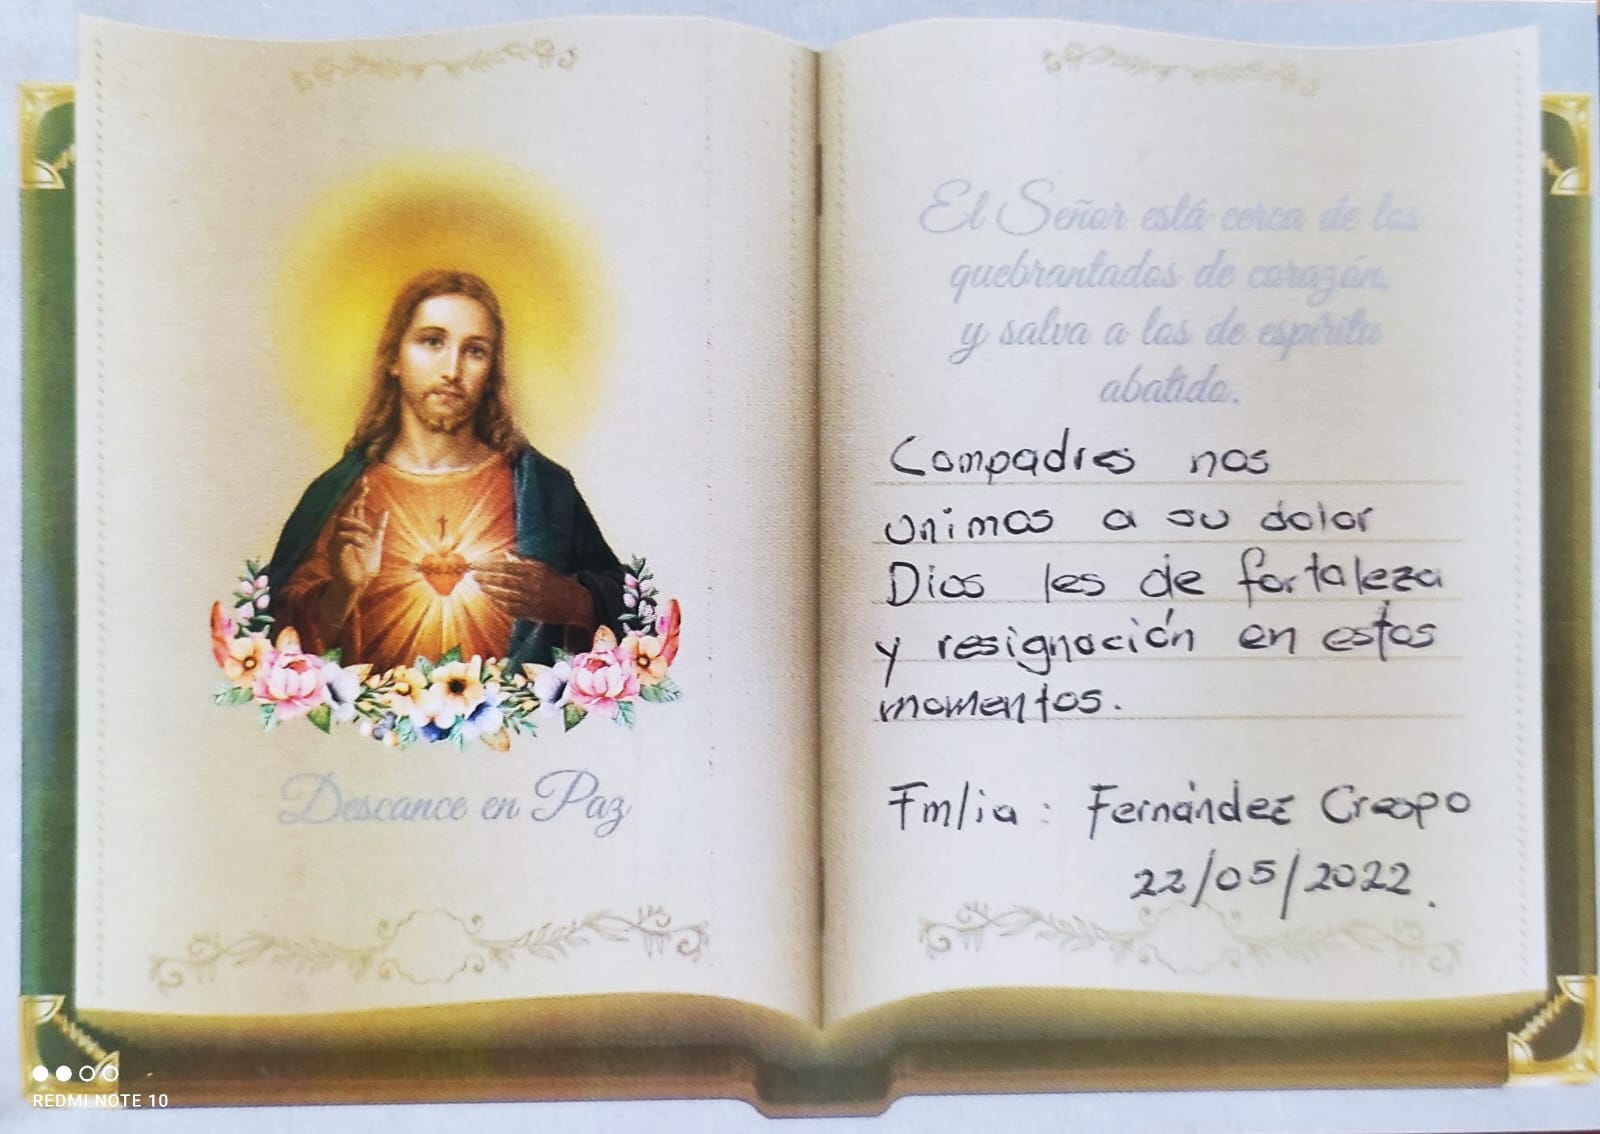 Descance en Paz
El Señor está cerca de los
quebrantados de corazón,
y salva a los de espíritu
abatido.
Compadres nos
unimos a su dolor
Dios les de fortaleza
y resignación en estos
momentos.
Fmlia : Fernández Crespo
22/05/2022.
REDMI NOTE 10